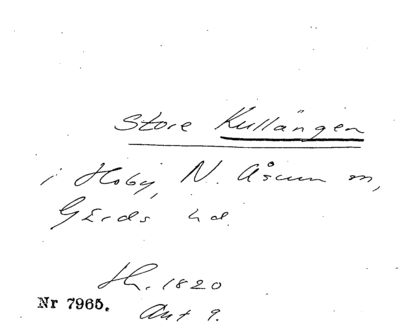 Store Kullängen
i Hoby, N. Åsum sn,
Gärds hd.
Lh. 1820
Nr 7965.
Akt 9.